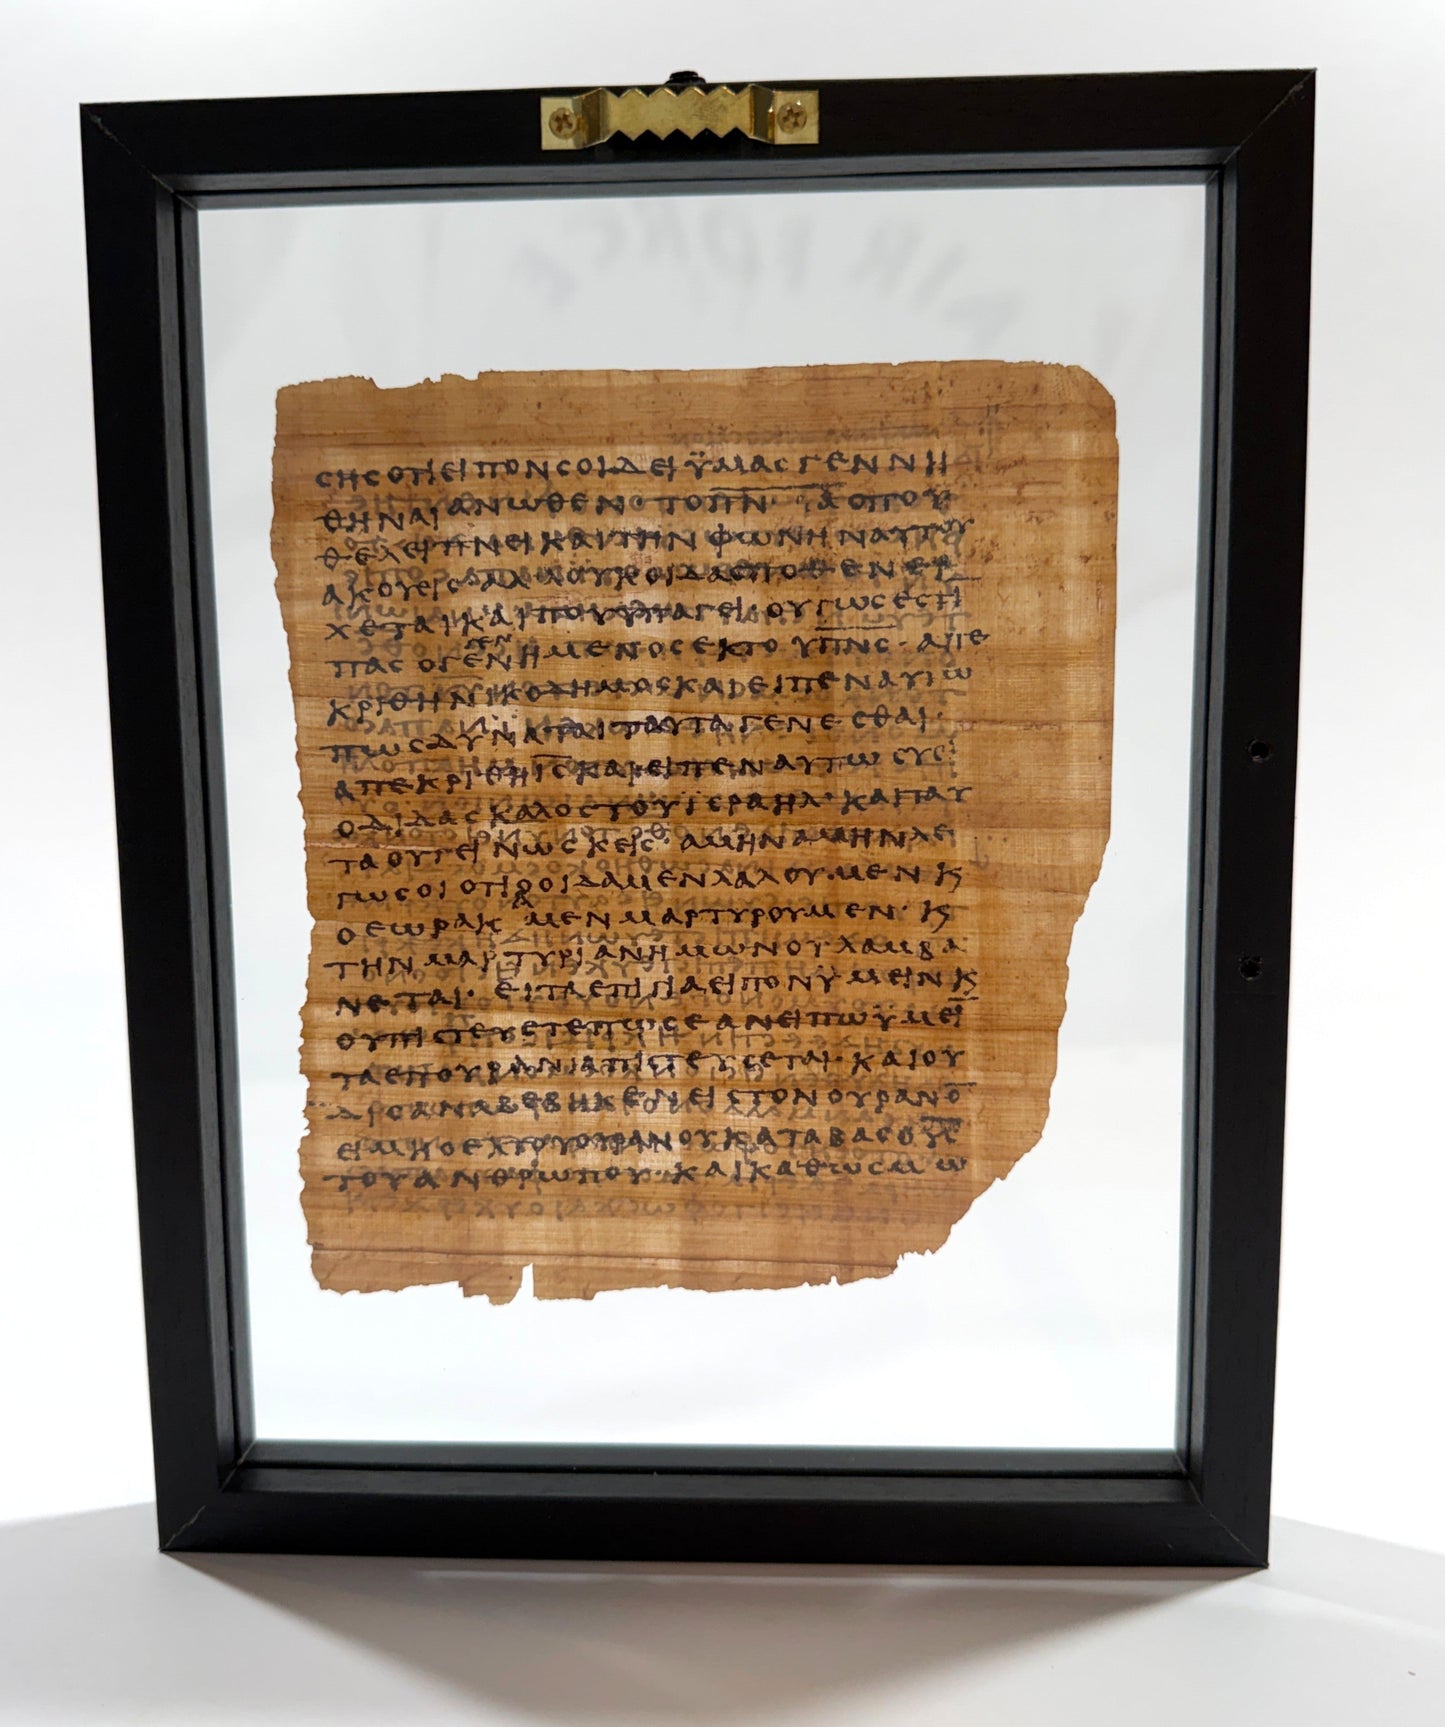 ϲηϲοτιειπονϲοιδειϋμαϲγεννη
θηναιανωθεν οτοπ̅ν̅· αοπου
θελειπνεικαιτηνφωνηναυτου
ακουειϲαλλουκοιδαϲποθενερ
χεταικαιπουυπαγει· ουτωϲεϲτι
παϲογεγεν̅ημενοϲεκτουπ̅ν̅ϲ̅· απε
κριθηνικοδημοϲκαιειπεναυτω
πωϲδυναταιταυταγενεϲθαι·
απεκριθηι̅ϲ̅καιειπεναυτωϲυει
οδιδαϲκαλοϲτουϊϲραηλ· καιταυ
ταουγεινωϲκειϲ· αμηναμηνλε
γωϲοιοτιοοιδαμενλαλουμενκ
οεωρακαμενμαρτυρουμεν· κ
τηνμαρτυριανημωνουλαμβα
νεται· ειταεπιγιαειπονϋμεινκ
ουπιϲτευετεπωϲεανειπωϋμει̅
ταεπουρανιαπιϲτευϲεται· καιου
διϲαναβεβηκενειϲτονουρανο̅
ειμηοεκτουουρανουκαταβαϲουι̅ϲ̅
τουανθρωπου· καικαθωϲμω